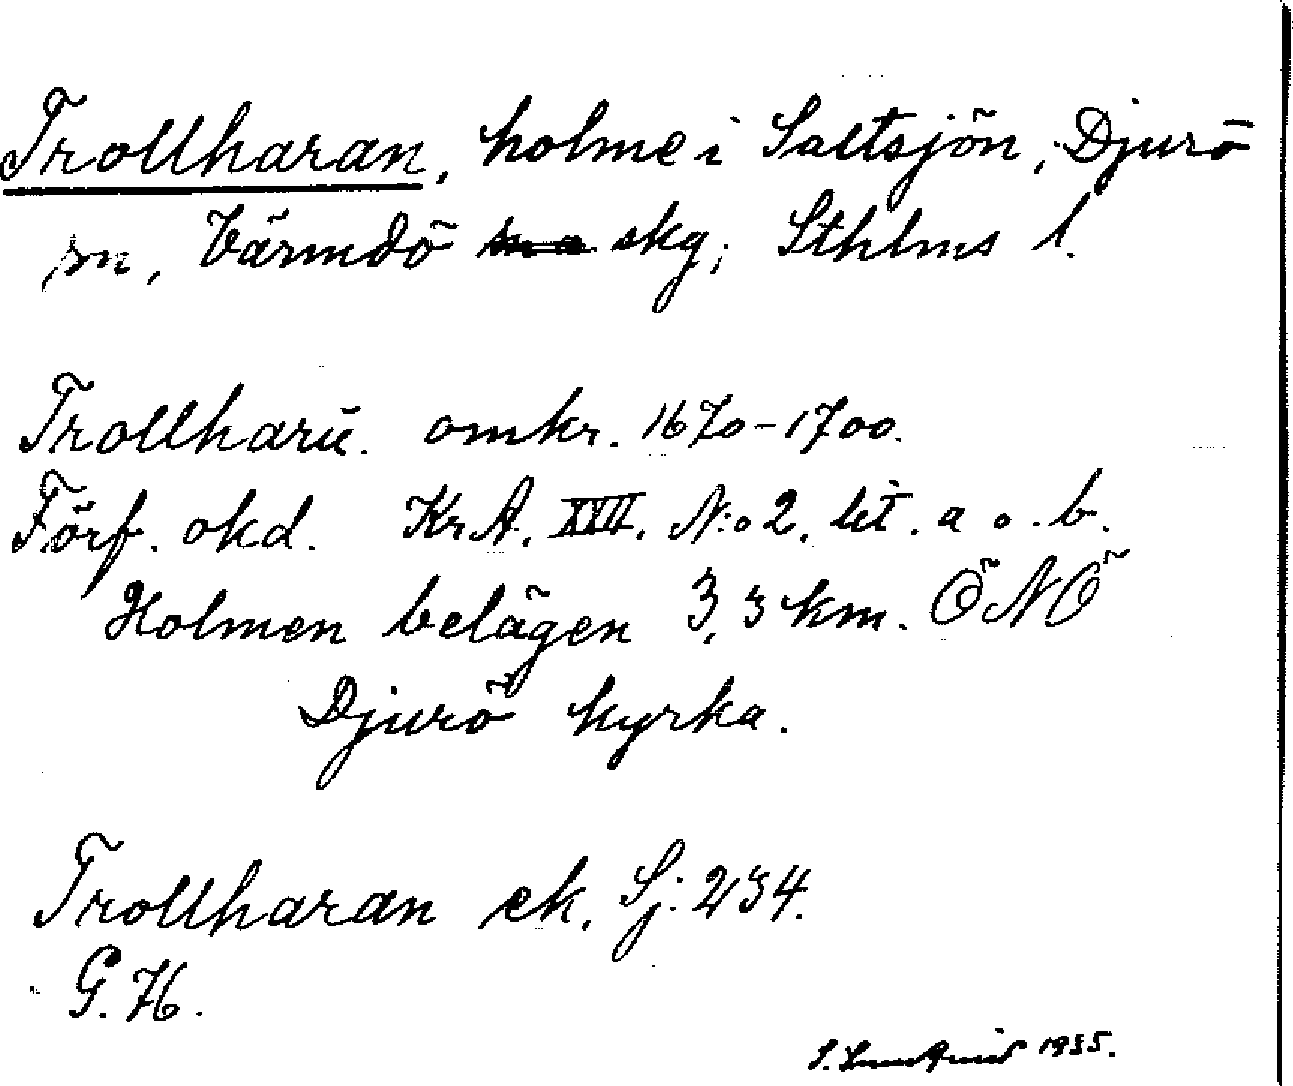 Trollharan, holme i Saltsjön, Djurö
sn, Värmdö skg, Sthlms l.
Trollharū. omkr. 1670-1700.
Förf. okd. KrA. XVII. N:o 2. lit. a o. b.
Holmen belägen 3,3 km. ÖNÖ
Djurö kyrka.
Trollharan ek. Sj: 234.
G. 76.
S. 1935.